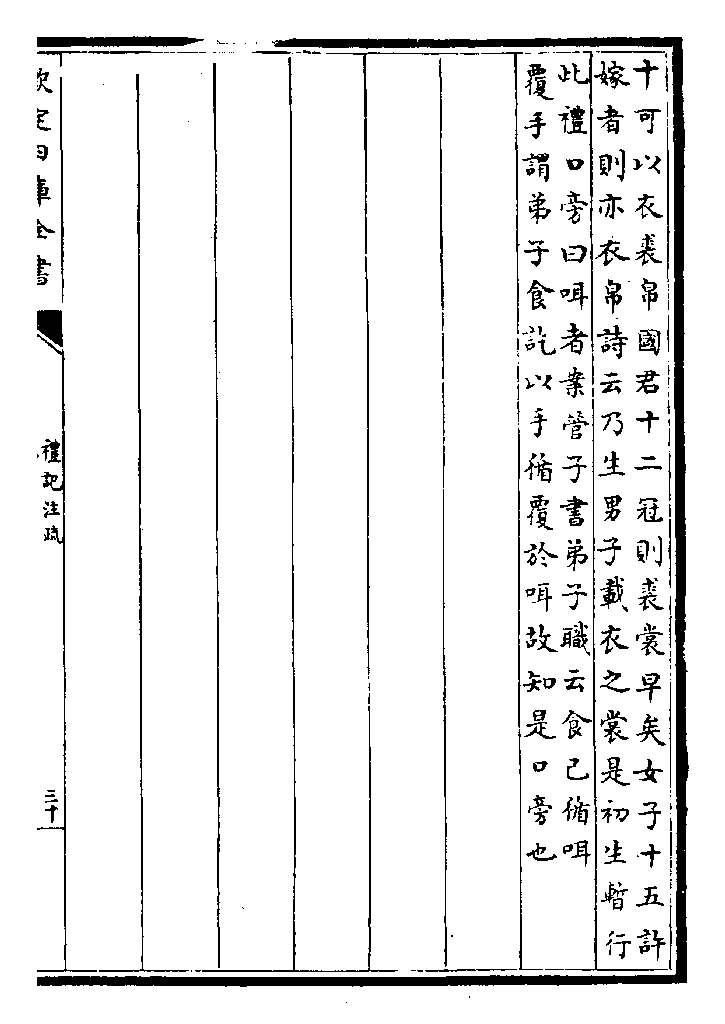 十可以衣裘帛國君十二冠則裘裳早矣女子十五許
嫁者則亦衣帛詩云乃生男子載衣之裳是初生暫行
此禮口旁曰咡者案管子書弟子職云食已循咡
覆手謂弟子食訖以手循覆於咡故知是口旁也
欽定四庫全書
禮記注疏
三十